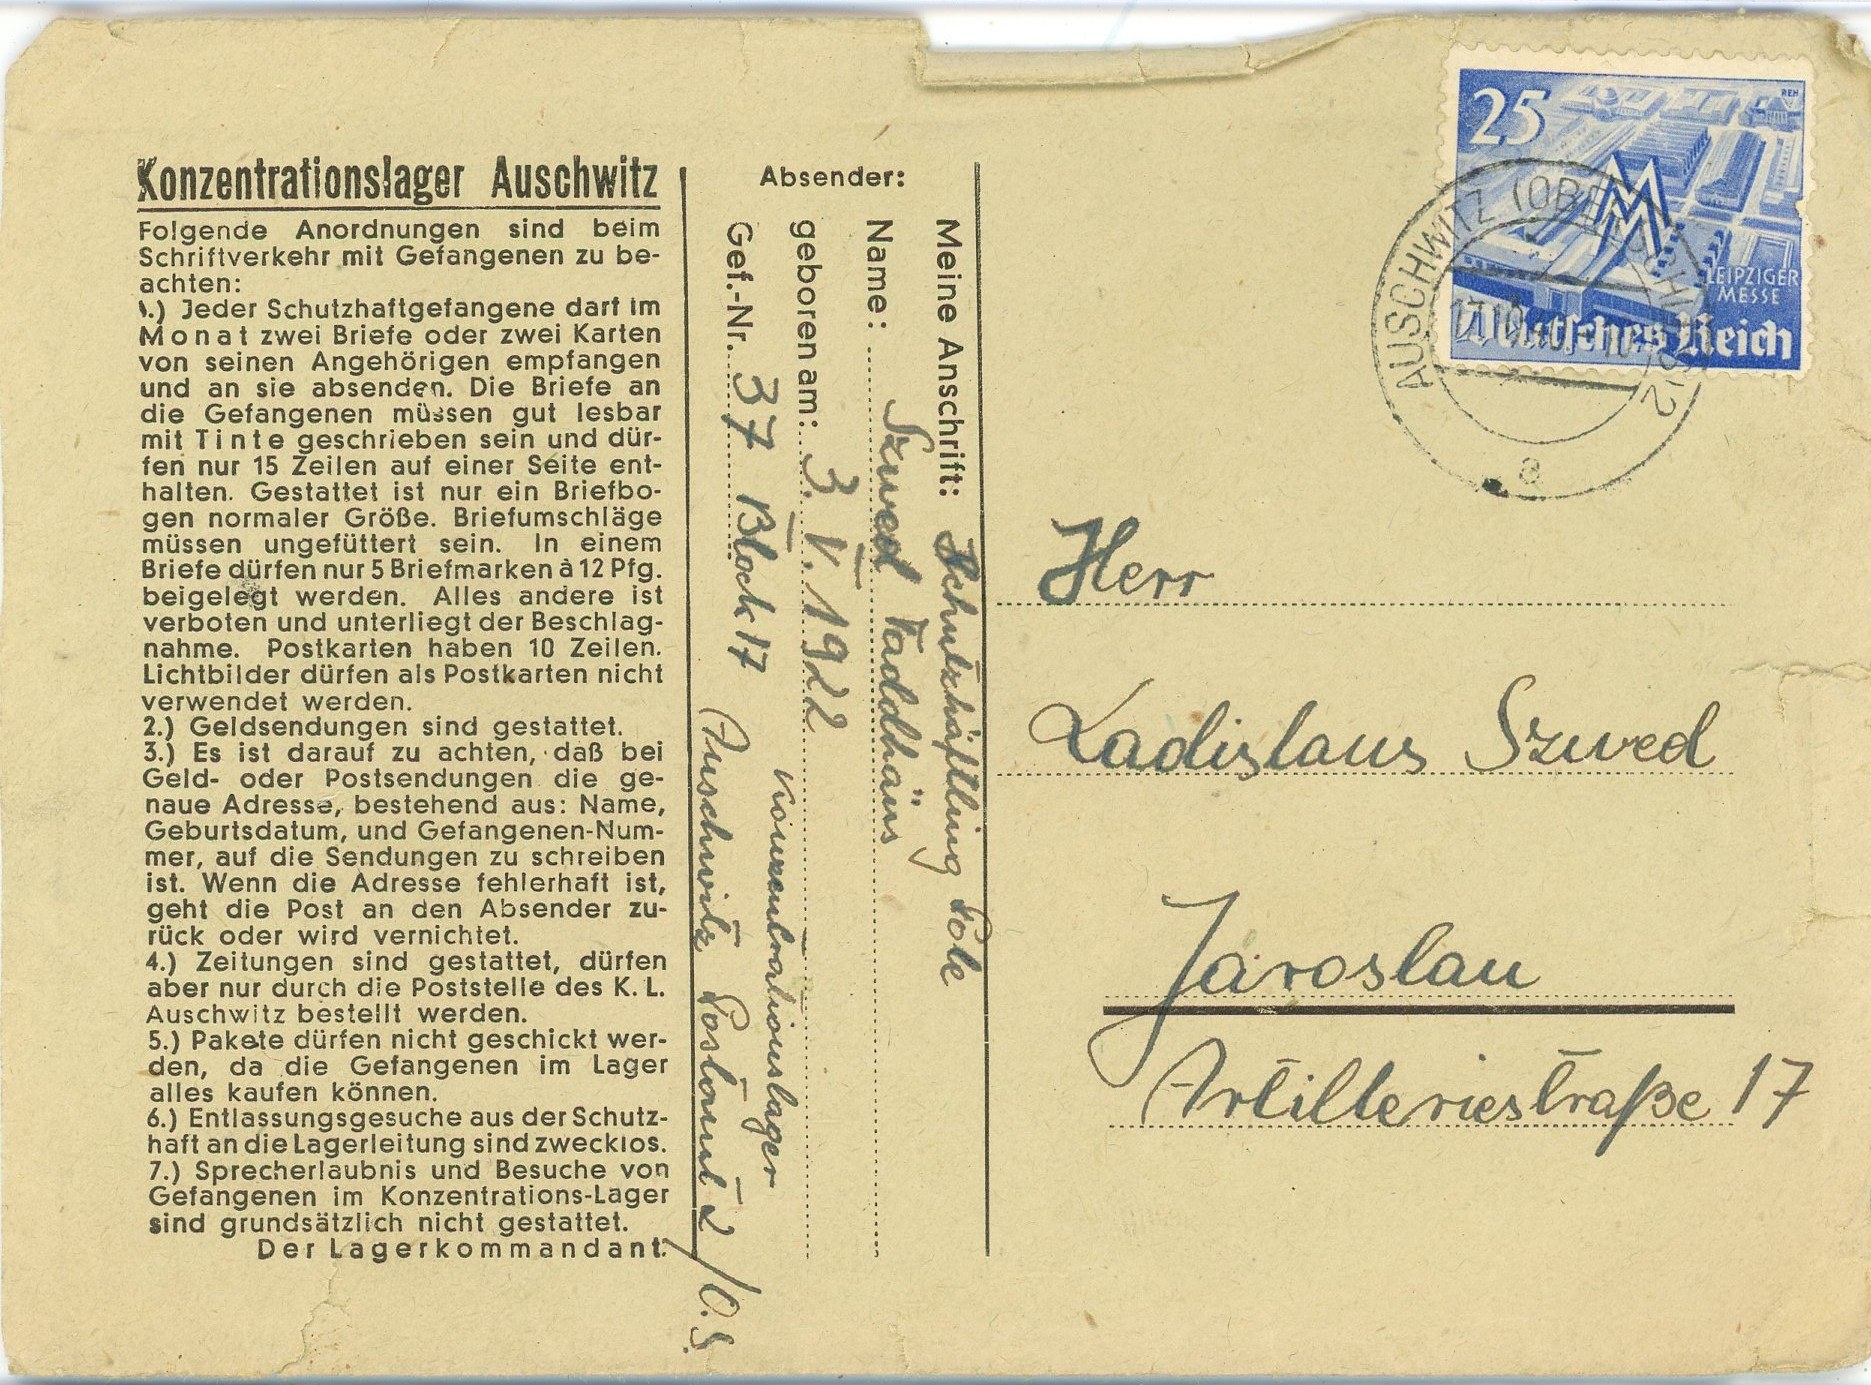 Konzentrationslager Auschwitz
Folgende Anordnungen sind beim
Schriftverkehr mit Gefangenen zu be-
achten:
1.) Jeder Schutzhaftgefangene darf im
Monat zwei Briefe oder zwei Karten
von seinen Angehörigen empfangen
und an sie absenden. Die Briefe an
die Gefangenen müssen gut lesbar
mit Tinte geschrieben sein und dür-
fen nur 15 Zeilen auf einer Seite ent-
halten. Gestattet ist nur ein Briefbo-
gen normaler Größe. Briefumschläge
müssen ungefüttert sein. In einem
Briefe dürfen nur 5 Briefmarken à 12 Pfg.
beigelegt werden. Alles andere ist
verboten und unterliegt der Beschlag-
nahme. Postkarten haben 10 Zeilen.
Lichtbilder dürfen als Postkarten nicht
verwendet werden.
2.) Geldsendungen sind gestattet.
3.) Es ist darauf zu achten, daß bei
Geld- oder Postsendungen die ge-
naue Adresse, bestehend aus: Name,
Geburtsdatum, und Gefangenen-Num-
mer, auf die Sendungen zu schreiben
ist. Wenn die Adresse fehlerhaft ist,
geht die Post an den Absender zu-
rück oder wird vernichtet.
4.) Zeitungen sind gestattet, dürfen
aber nur durch die Poststelle des K. L.
Auschwitz bestellt werden.
5.) Pakete dürfen nicht geschickt wer-
den, da die Gefangenen im Lager
alles kaufen können.
6.) Entlassungsgesuche aus der Schutz-
haft an die Lagerleitung sind zwecklos.
7.) Sprecherlaubnis und Besuche von
Gefangenen im Konzentrations-Lager
sind grundsätzlich nicht gestattet.
Der Lagerkommandant.
Absender:
Meine Anschrift: Schutzhäftling Pole
Name: Szwed Taddhäus
geboren am: 3. V. 1922
Konzentrationslager
Gef.-Nr. 37 Block 17
Auschwitz Postamt 2/O.S.
25
REH
LEIPZIGER
MESSE
Deutsches Reich
AUSCHWITZ (OBERSCHLES) 2
17.10.40
a
Herr
Ladislaus Szwed
Jaroslau
Artilleriestraße 17